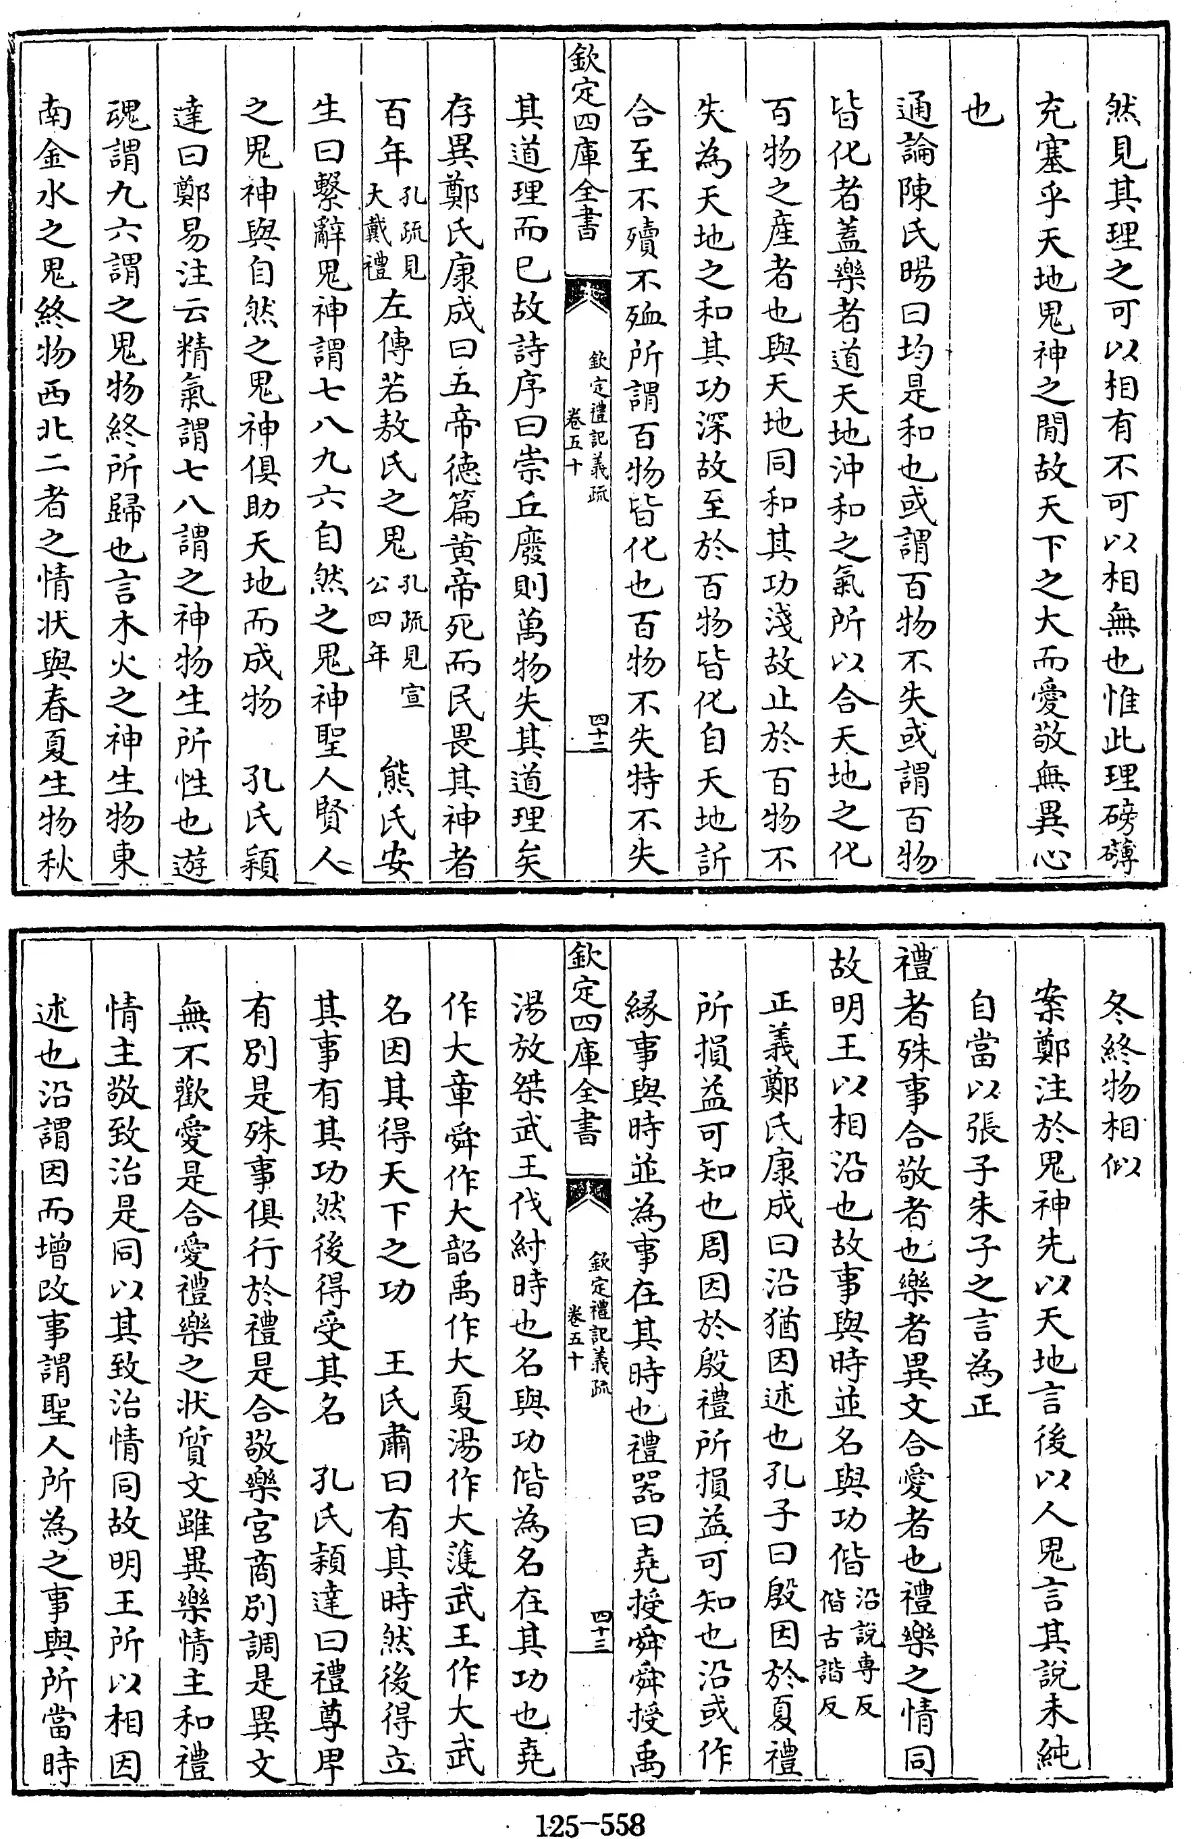 然見其理之可以相有不可以相無也惟此理磅礴
充塞乎天地鬼神之間故天下之大而愛敬無異心
也
通論陳氏暘曰均是和也或謂百物不失或謂百物
皆化者蓋樂者道天地沖和之氣所以合天地之化
百物之産者也與天地同和其功淺故止於百物不
失為天地之和其功深故至於百物皆化自天地訢
合至不殰不殈所謂百物皆化也百物不失特不失
欽定四庫全書
欽定禮記義疏
卷五十
四十二
其道理而已故詩序曰崇丘廢則萬物失其道理矣
存異鄭氏康成曰五帝德篇黄帝死而民畏其神者
百年孔疏見大戴禮左傳若敖氏之鬼孔疏見宣公四年 熊氏安
生曰繫辭鬼神謂七八九六自然之鬼神聖人賢人
之鬼神與自然之鬼神俱助天地而成物 孔氏穎
達曰鄭易注云精氣謂七八謂之神物生所性也遊
魂謂九六謂之鬼物終所歸也言木火之神生物東
南金水之鬼終物西北二者之情狀與春夏生物秋
冬終物相似
案鄭注於鬼神先以天地言後以人鬼言其説未純
自當以張子朱子之言為正
禮者殊事合敬者也樂者異文合愛者也禮樂之情同
故明王以相沿也故事與時並名與功偕沿説專反偕古諧反
正義鄭氏康成曰沿猶因述也孔子曰殷因於夏禮
所損益可知也周因於殷禮所損益可知也沿或作
縁事與時並為事在其時也禮器曰堯授舜舜授禹
欽定四庫全書
欽定禮記義疏
卷五十
四十三
湯放桀武王伐紂時也名與功偕為名在其功也堯
作大章舜作大韶禹作大夏湯作大濩武王作大武
名因其得天下之功 王氏肅曰有其時然後得立
其事有其功然後得受其名 孔氏穎達曰禮尊卑
有别是殊事俱行於禮是合敬樂宫商别調是異文
無不歡愛是合愛禮樂之状質文雖異樂情主和禮
情主敬致治是同以其致治情同故明王所以相因
述也沿謂因而增改事謂聖人所為之事與所當時
125-558